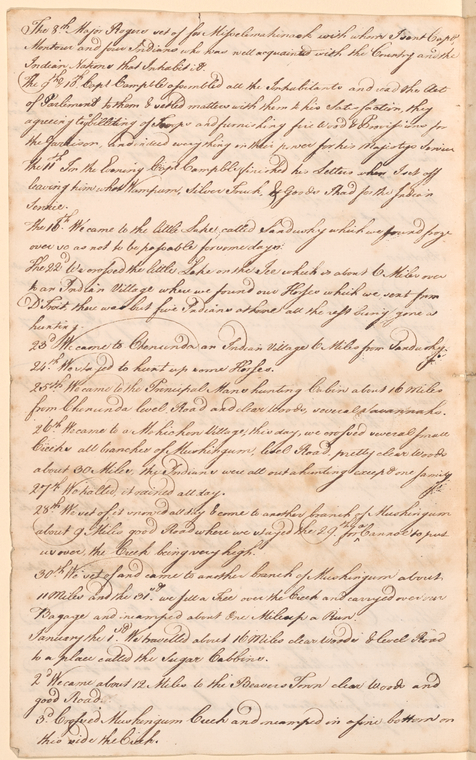 The 8.th Major Rogers set of for Misselemakinack with whom I sent Capt.
Montour and four Indians who was well acquainted with the Country and the
Indian Nations that Inhabit it.
The 9.th & 10.th Capt Campble assembled all the Inhabitants and read the Act
of Parlement to them & setled matters with them to his Satisfaction, they
agreeing to billiting of Troops and furnishing fire Wood & Provisions for
the Garrison, and indeed everything in their power for his Majestys Service
The 11.th In the Evening Capt. Campble finished his Letters when I set off
leaving him what Wampum, Silver Truck, & Goods I had for the Indian
Service.
The 16.th We came to the little Lake called Sandusky which we found froze
over so as not to be passable for some days.
The 22.d We crossed the little Lake on the Ice which is about 6 Miles over
to an Indian Village where we found our Horses which we sent from
D'Troit, there was but five Indians at home all the rest being gone a
hunting.
23.d We came to Chenunda an Indian Village 6 Miles from Sandusky.
24.th We stayed to hunt up some Horses.
25th We came to the Principal Mans hunting Cabin about 16 Miles
from Chenunda level Road and clear Woods, several Savannahs.
26.th We came to a Mohickon Village, this day, we crossed several small
Creeks all branches of Muskingum, level Road, pretty clear Woods
about 30 Miles, the Indians were all out a hunting except one family
27.th We halted it rained all day.
28.th We set of it snowed all day & come to another branch of Muskingum
about 9 Miles good Road where we stayed the 29.th for a Cannoe to put
us over the Creek being very high.
30.th We set of and came to another branch of Muskingum about
11 Miles and the 31.st we fell a Tree over the Creek and carryed over our
Bagage and incamped about One Mile up a Run.
January the 1.st We travelled about 16 Miles clear woods & level Road
to a place called the Sugar Cabbins.
2.d We came about 12 Miles to the Beavers Town clear Woods and
good Road.
3.d Crossed Muskingum Creek and incamped in a fine bottom on
this side the Creek.